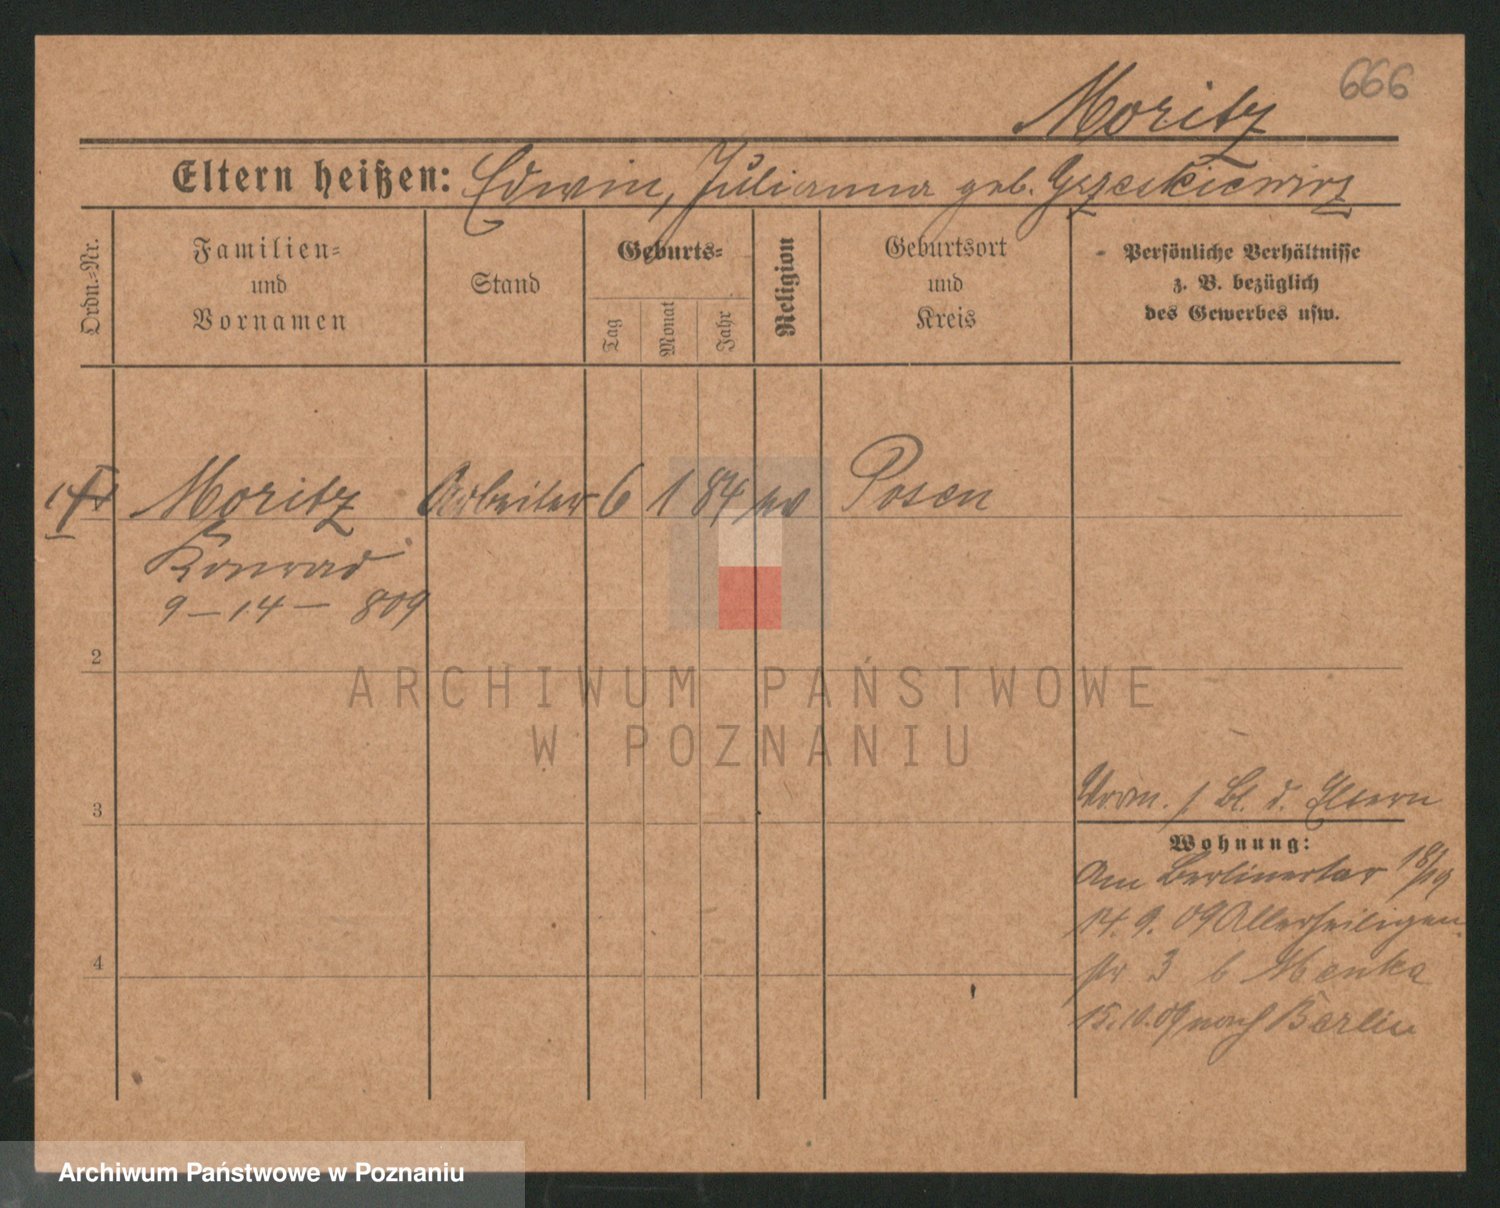 666
Moritz
Eltern heißen: Edwin, Julianna geb. Grzeskiewicz
Ordn.-Nr.
Familien-
und
Vornamen
Stand
Geburts-
Tag
Monat
Jahr
Religion
Geburtsort
und
Kreis
Persönliche Verhältnisse
z. B. bezüglich
des Gewerbes usw.
Moritz Arbeiter 6 1 84 ev Posen
Konrad
9 – 14 – 809
2
3
4
Vorm. s. Bl. d. Eltern
Wohnung:
Am Berlinertor 18/19
14. 9. 09 Allerheiligen
str 3 b Menka
15.10.09 nach Berlin
ARCHIWUM PAŃSTWOWE
W POZNANIU
Archiwum Państwowe w Poznaniu